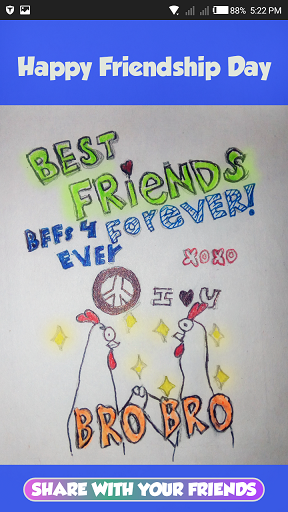 88% 5:22 PM
Happy Friendship Day
BEST
FRiENDS
FOREVER!
BFFS 4
EVER
XOXO
I ♥ U
BRO BRO
SHARE WITH YOUR FRIENDS